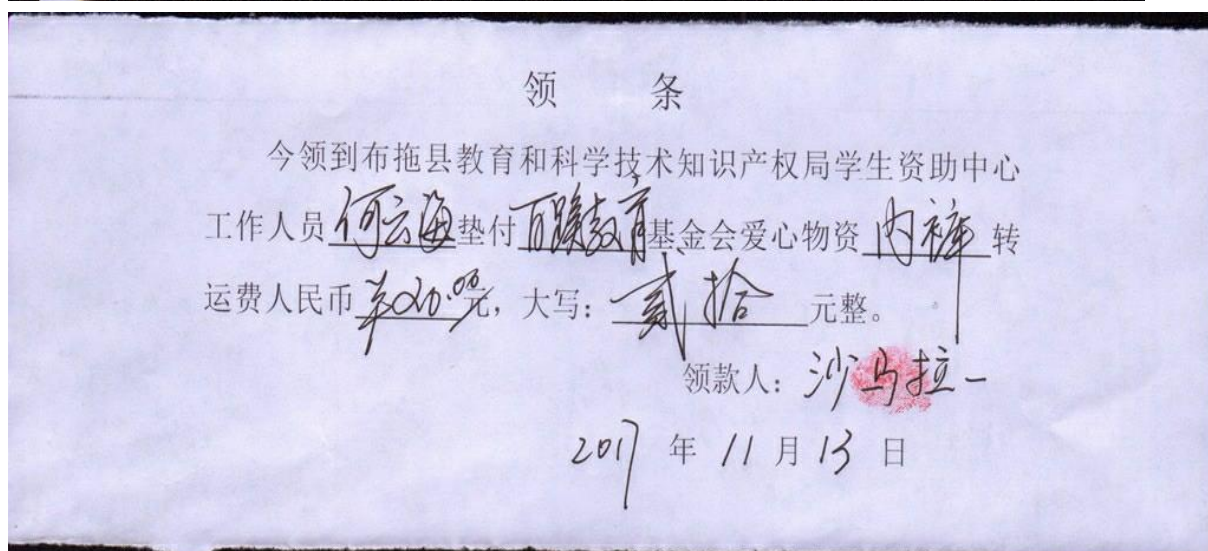 领 条
今领到布拖县教育和科学技术知识产权局学生资助中心
工作人员何云海垫付百蹊教育基金会爱心物资内裤转
运费人民币¥20.00元，大写：贰拾元整。
领款人：沙马拉一
2017 年 11 月 13 日